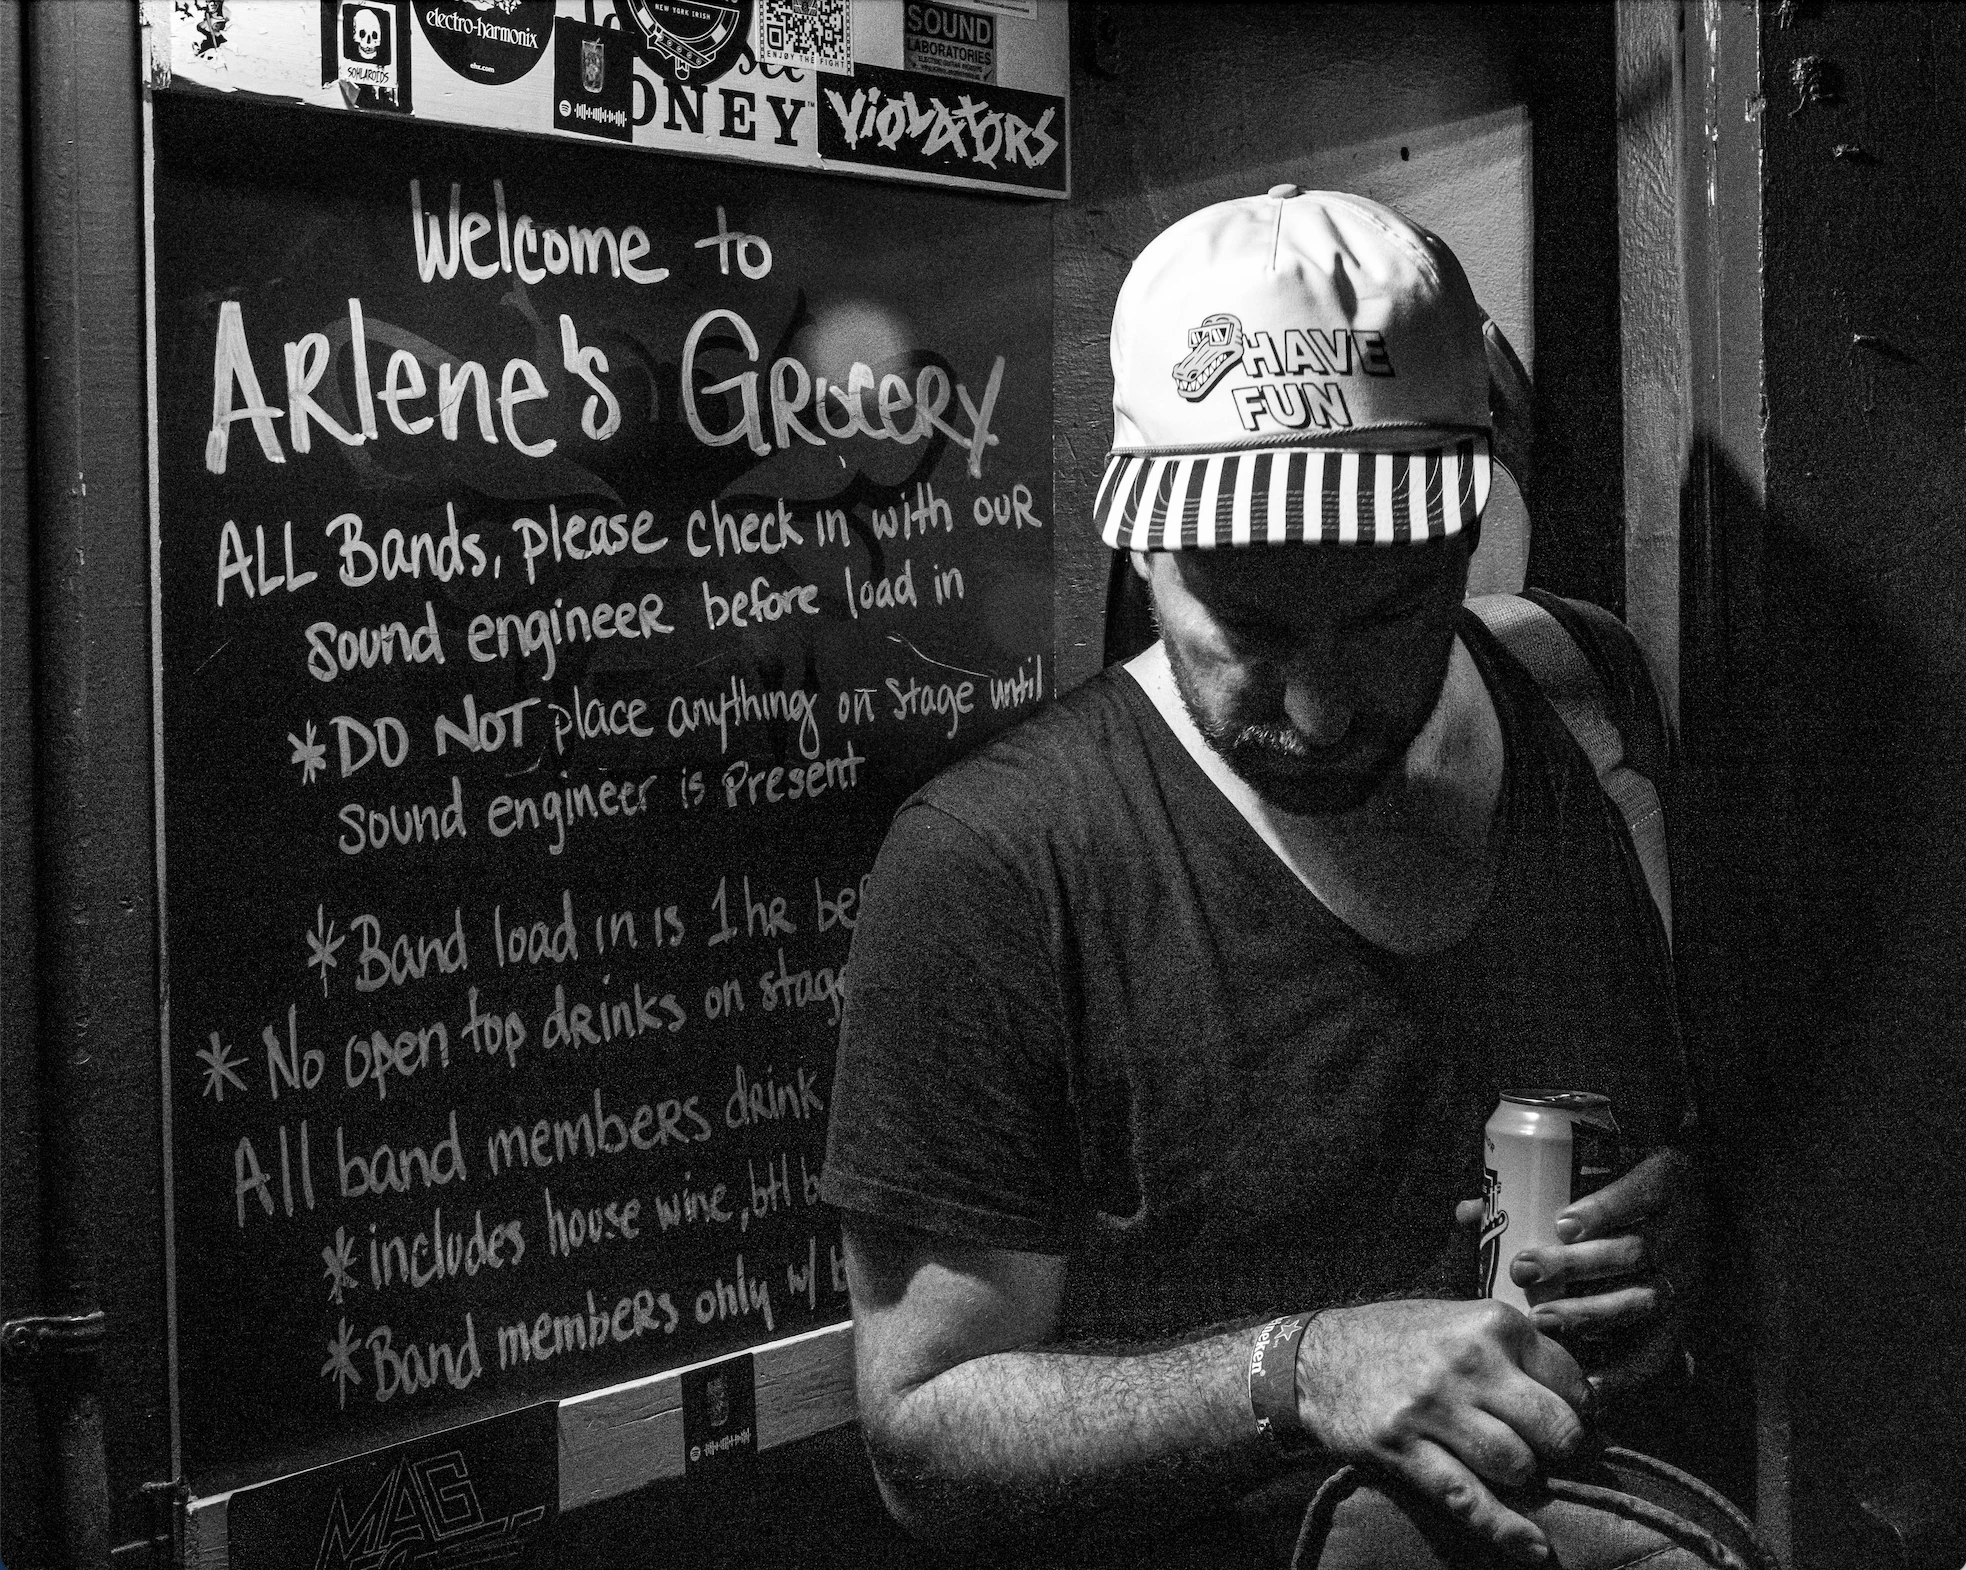 electro-harmonix
ehx.com
SOHLAROIDS
NEW YORK IRISH
ENJOY THE FIGHT
SOUND
LABORATORIES
ONEY
VIOLATORS
Welcome to
ARlene's GROCERY
ALL Bands, please check in with OUR
sound engineeR before load in
*DO NOT place anything on stage until
sound engineer is Present
*Band load in is 1 hR bef
* No open top dRinks on stage
All band membeRs drink
*includes house wine, btl b
*Band membeRs only w/ b
HAVE
FUN
eineken
MAG